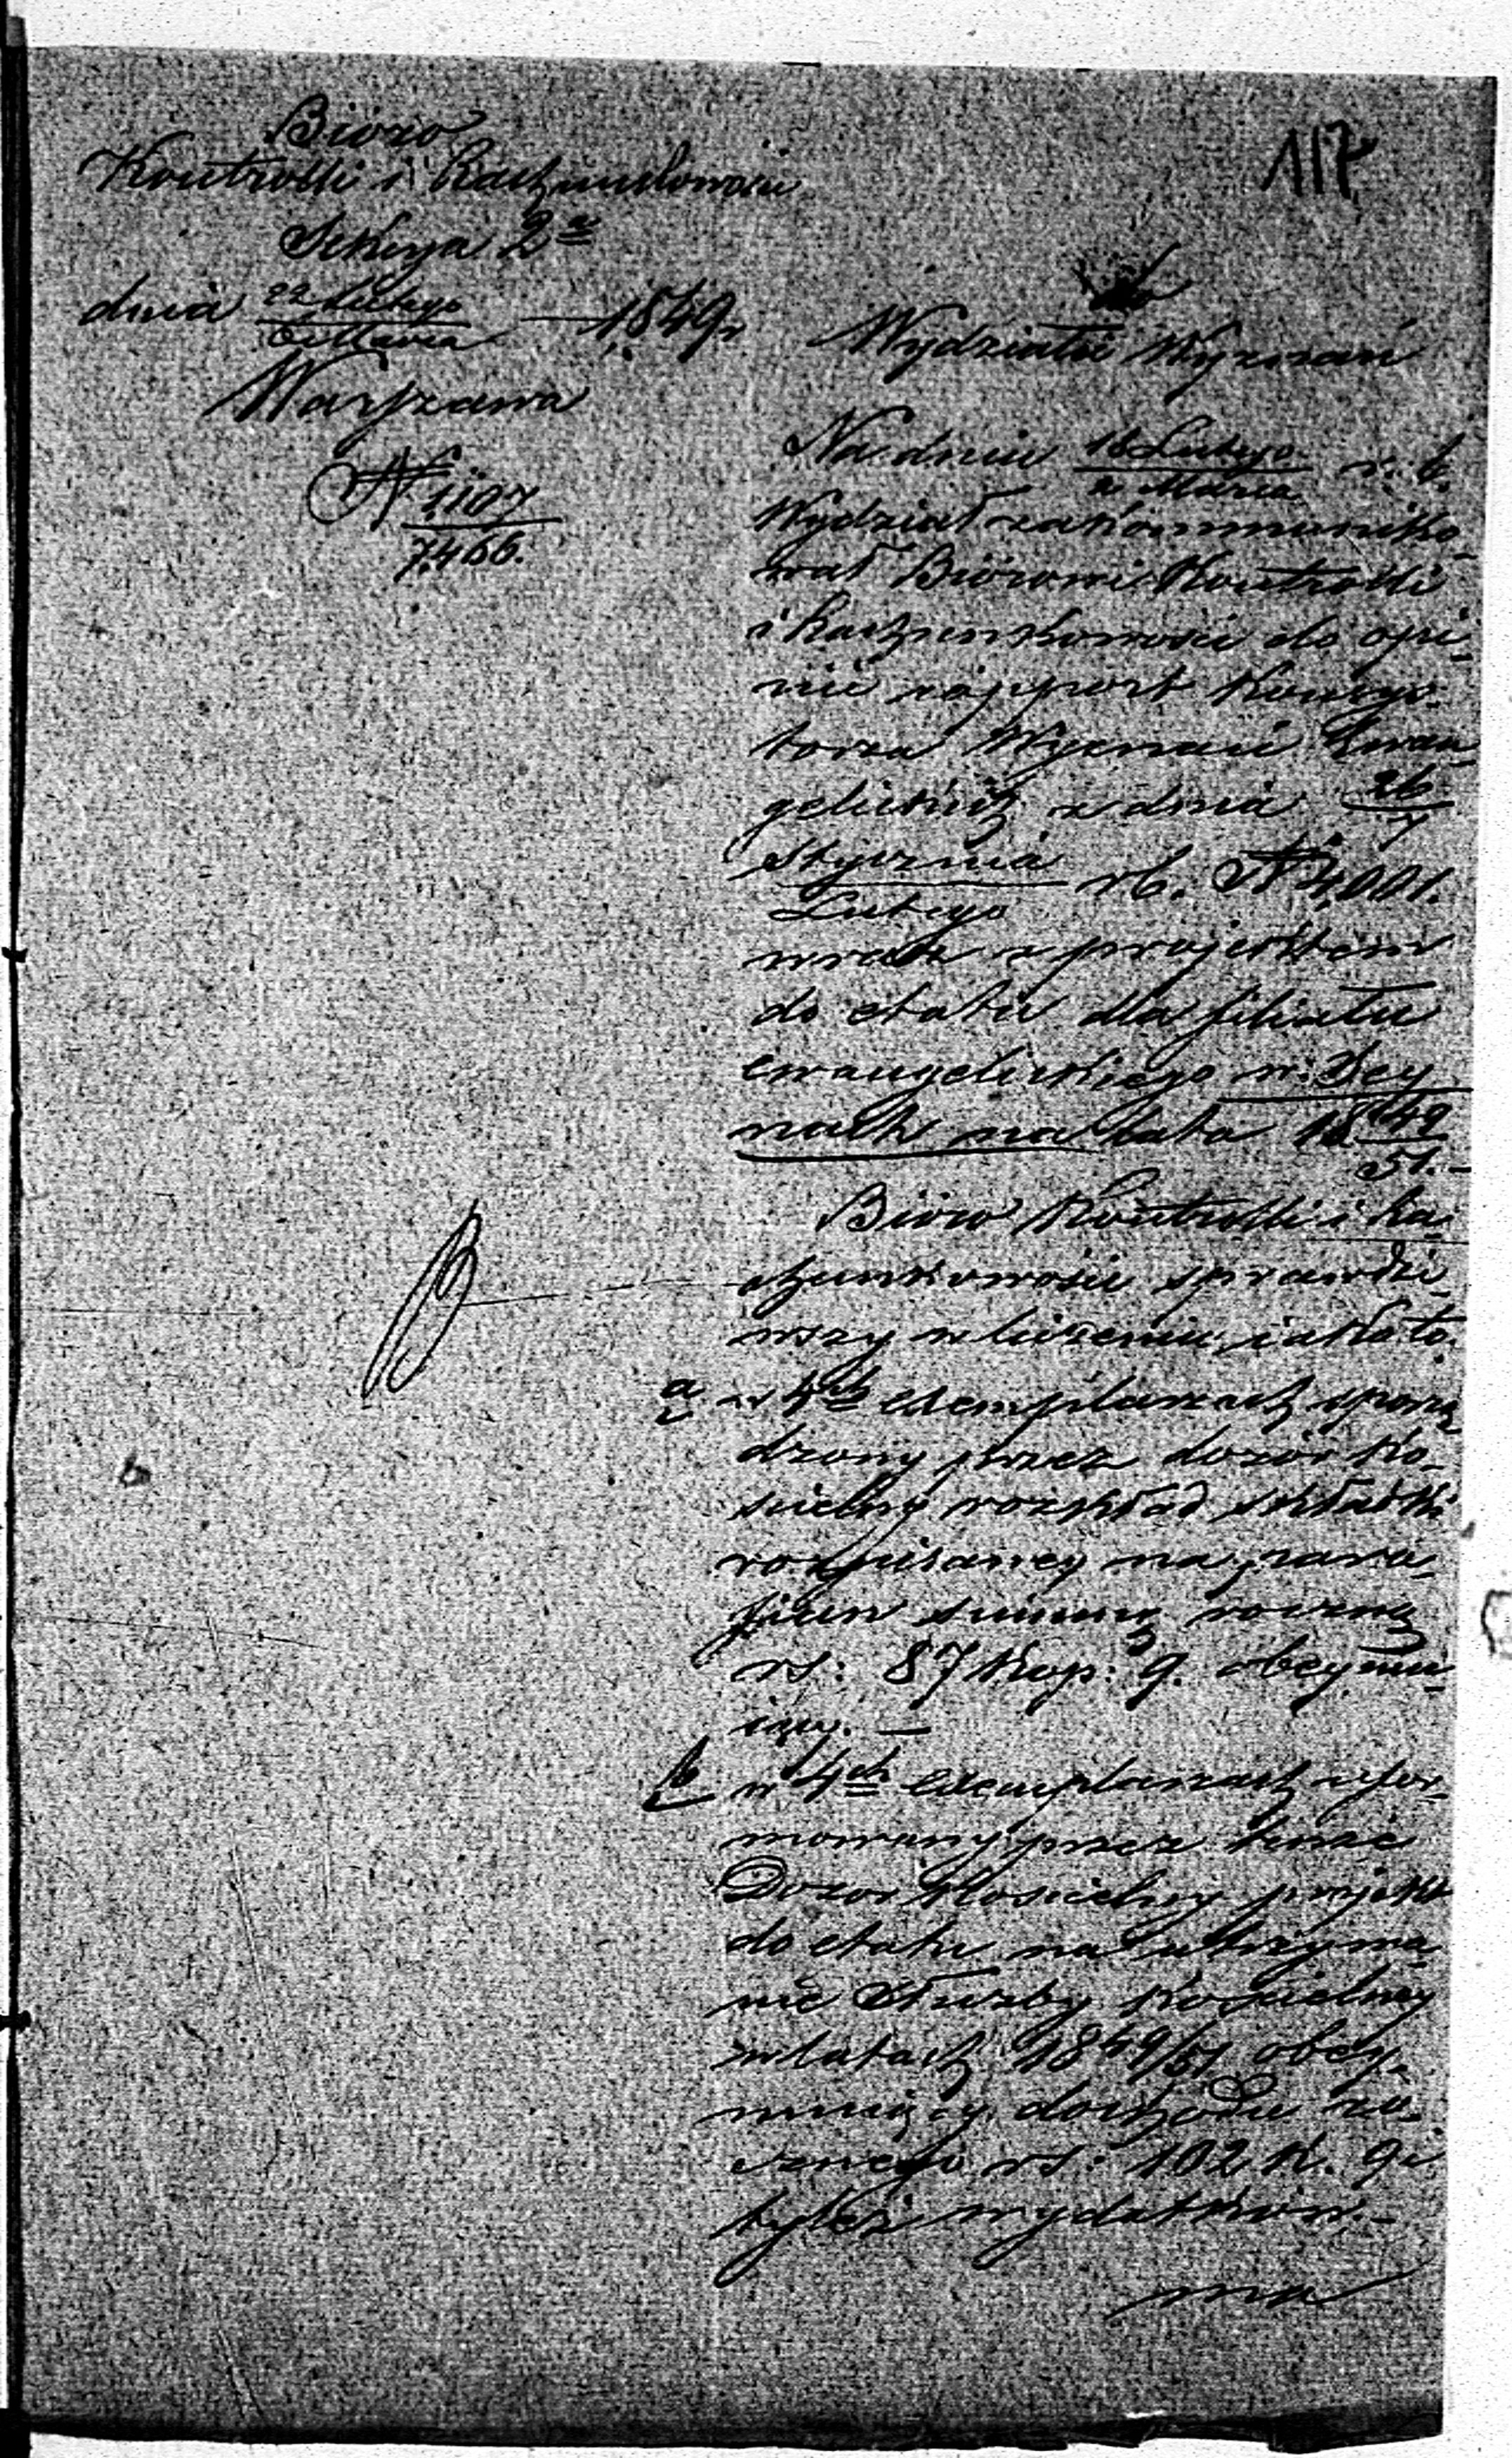 Bióro
Kontrolli i Rachunkowości
Sekcya 2a
dnia 22 Lutego / 6 Marca 1849 r
Warszawa
N 1,107 / 7,466.
117
do
Wydziału Wyznań
Na dniu 18 Lutego / 2 Marca r. b.
Wydział zakommuniko-
wał Biórowi Kontrolli
i Rachunkowości do opi-
nii rapport Konsys-
torza Wyznań Ewan-
gelickich z dnia 26 / 7
Stycznia / Lutego r b. N 4,001.
wraz z projektem
do etatu dla filiału
ewangelickiego w Sey
nach na lata 1849 / 51. -
Bióro Kontrolli i Ra-
chunkowości sprawdzi-
wszy w liczeniu, jako to.
a w 4ch exemplarzach sporzą
dzony przez dozór Ko-
ścielny rozkład składki
rozpisaney na para-
fian summę roczną
rs: 87 kop: 9. obeymu-
iący. —
b w 4ch exemplarzach ufor-
mowany przez tenże
Dozór Kościelny projekt
do etatu na utrzyma-
nie Służby Kościelney
w latach 1849/51 obey-
muiący dochodu ro-
cznego rs: 102 k. 9 i
tyleż wydatków. -
ma